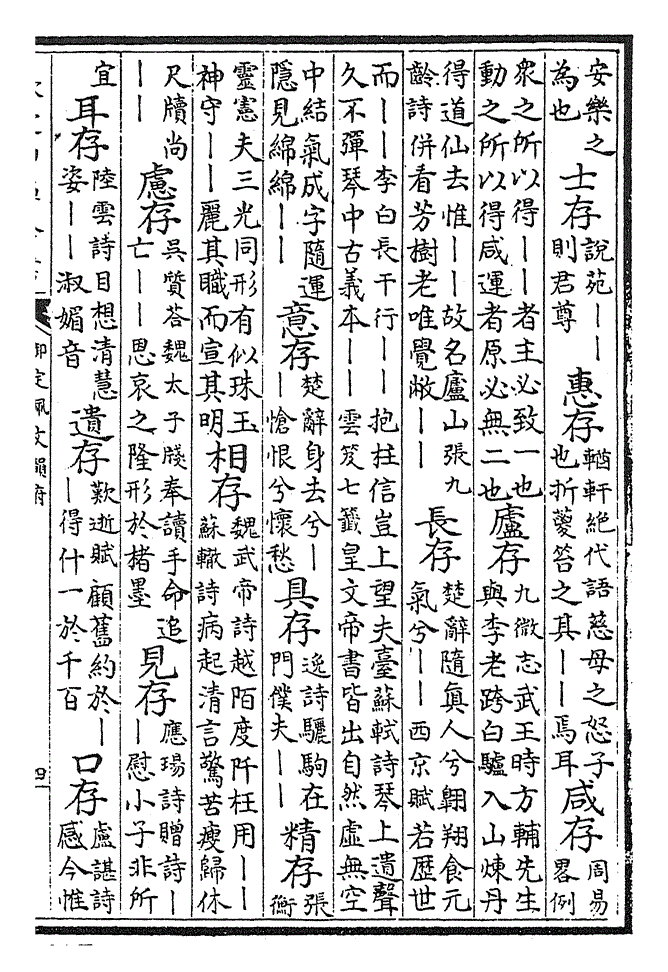 安樂之為也 士存 說苑——則君尊 惠存 輶軒絕代語慈母之怒子也折葼笞之其——焉耳 咸存 周易畧例
衆之所以得——者主必致一也動之所以得咸運者原必無二也 廬存 九微志武王時方輔先生與李老跨白驢入山煉丹
得道仙去惟——故名廬山張九齡詩併看芳樹老唯覺敝—— 長存 楚辭隨真人兮翺翔食元氣兮——西京賦若歷世
而——李白長干行——抱柱信豈上望夫臺蘇軾詩琴上遺聲久不彈琴中古義本——雲笈七籤皇文帝書皆出自然虛無空
中結氣成字隨運隱見綿綿—— 意存 楚辭身去兮——愴恨兮懷愁 具存 逸詩驪駒在門僕夫—— 精存 張衡
靈憲夫三光同形有似珠玉神守——麗其職而宣其明 相存 魏武帝詩越陌度阡枉用——蘇轍詩病起清言驚苦瘦歸休
尺牘尚—— 慮存 吳質荅魏太子牋奉讀手命追亡——恩哀之隆形於楮墨 見存 應瑒詩贈詩——慰小子非所
宜 耳存 陸雲詩目想清慧姿——淑媚音 遺存 歎逝賦顧舊約於——得什一於千百 口存 盧諶詩感今惟
御定佩文韻府
四